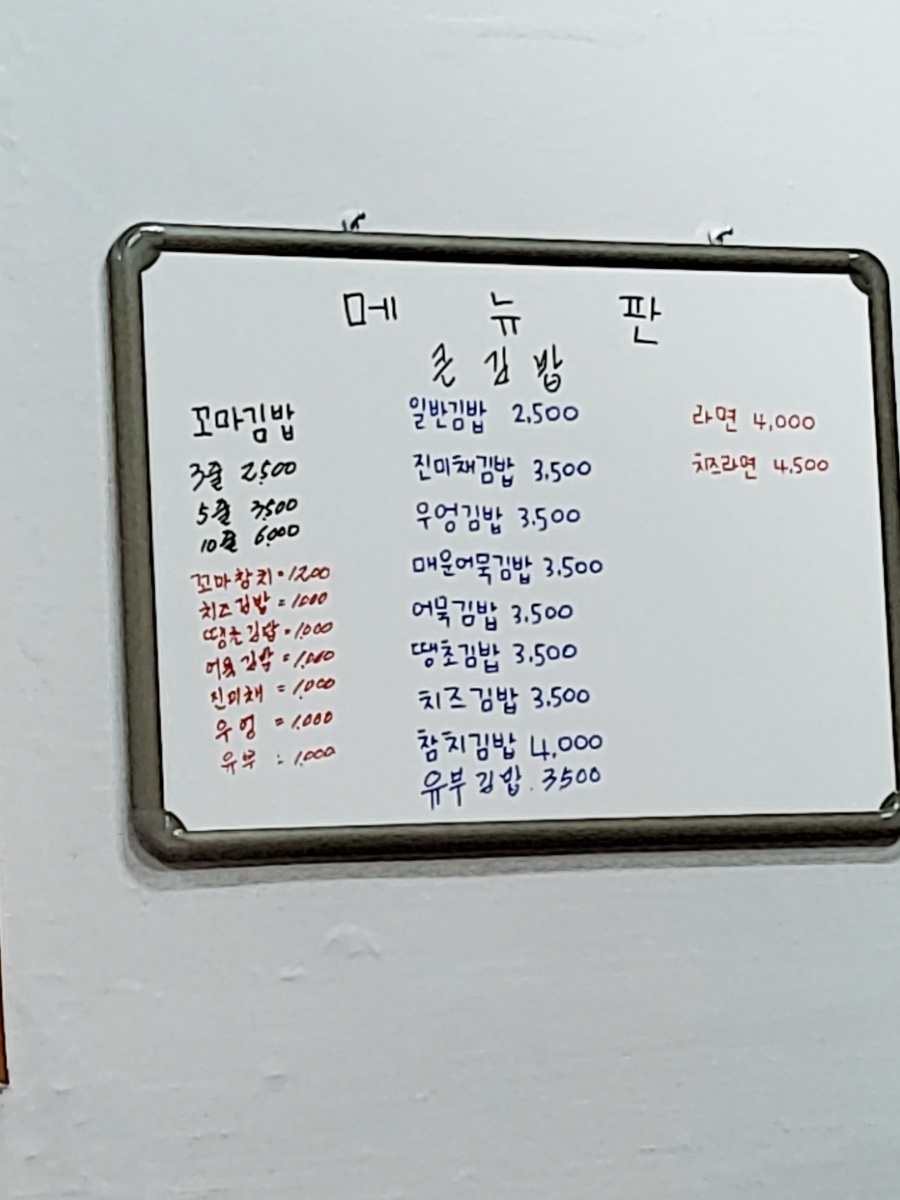 메 뉴 판
큰 김 밥
꼬마김밥
3줄 2,500
5줄 3,500
10줄 6,000
꼬마참치 = 1,200
치즈김밥 = 1,000
땡초김밥 = 1,000
어묵김밥 = 1,000
진미채 = 1,000
우엉 = 1,000
유부 = 1,000
일반김밥 2,500
진미채김밥 3,500
우엉김밥 3,500
매운어묵김밥 3,500
어묵김밥 3,500
땡초김밥 3,500
치즈김밥 3,500
참치김밥 4,000
유부김밥 3,500
라면 4,000
치즈라면 4,500